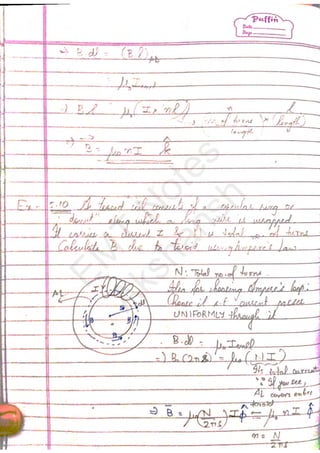 Puffin
Date
Page
⇒ B·dl = (B·l)AB
μ₀ Iencl
⇒ B l = μ₀ (I × nl)
n l
no. of turns × (length)
length
⇒ B = μ₀ n I k̂
Ex - 5.10 A toroid coil consists of a circular ring or
"donut" along which a long wire is wrapped.
It carries a current I & N is total no. of turns
Calculate B due to toroid using Ampere's Law.
N: Total no. of turns.
AL
I
for choosing Ampere's loop:
Choose it s.t current passes
UNIFORMLY through it
B·dl = μ₀ Iencl
⇒ B (2πs) = μ₀ (NI)
total current
∵ If you see,
AL covers entire
toroid
⇒ B = μ₀ (N/2πs) I φ̂ = μ₀ n I φ̂
n = N/2πs